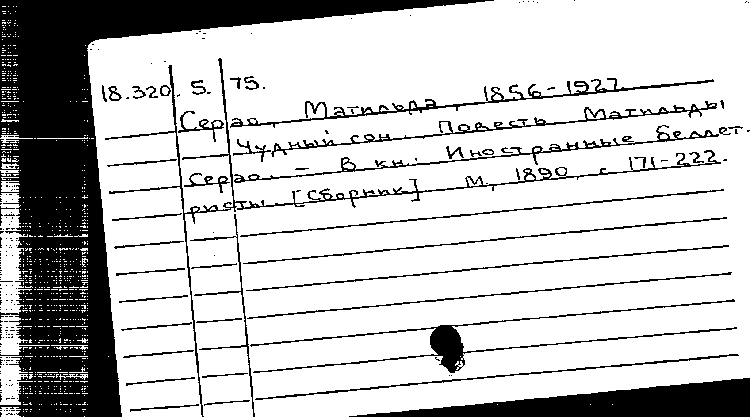 18.320. 5. 75.
Серао, Матильда, 1856-1927.
Чудный сон. Повесть Матильды
Серао. - В кн.: Иностранные беллет-
ристы. [Сборник] М, 1890, с 171-222.